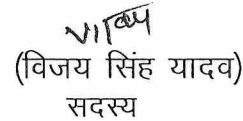 (विजय सिंह यादव)
सदस्य